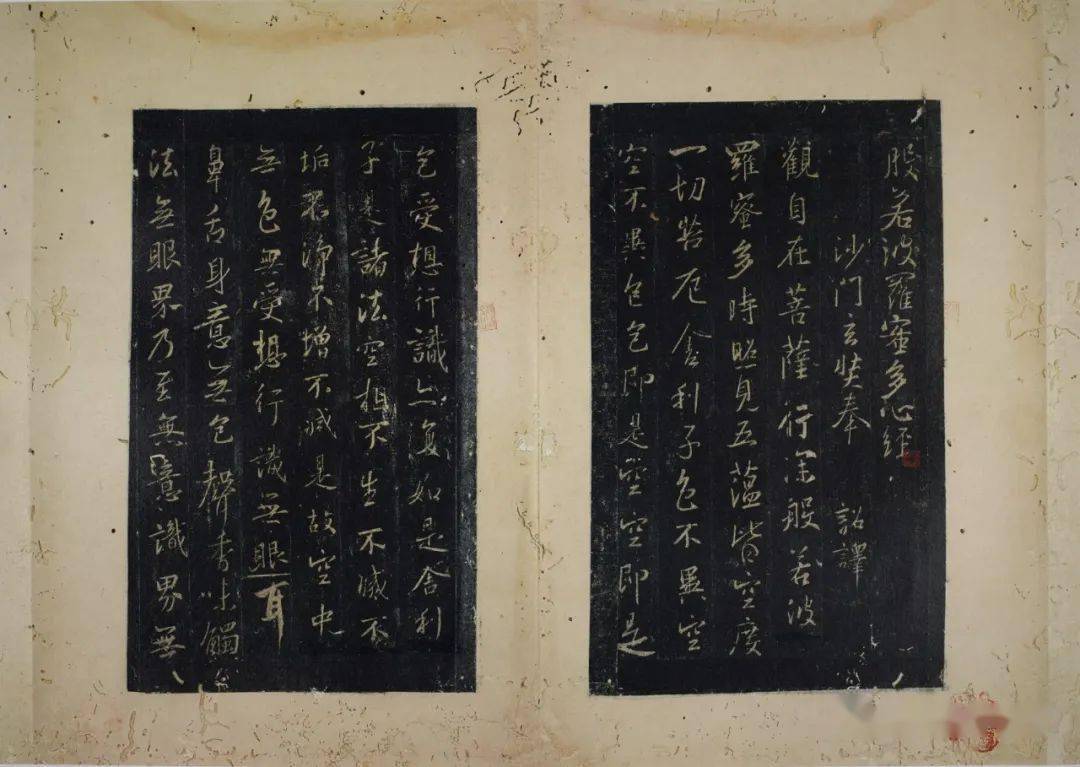 般若波羅蜜多心經
沙門玄奘奉 詔譯
觀自在菩薩行深般若波
羅蜜多時照見五蘊皆空度
一切苦厄舍利子色不異空
空不異色色即是空空即是
色受想行識亦復如是舍利
子是諸法空相不生不滅不
垢不淨不增不減是故空中
無色無受想行識無眼耳
鼻舌身意無色聲香味觸
法無眼界乃至無意識界無